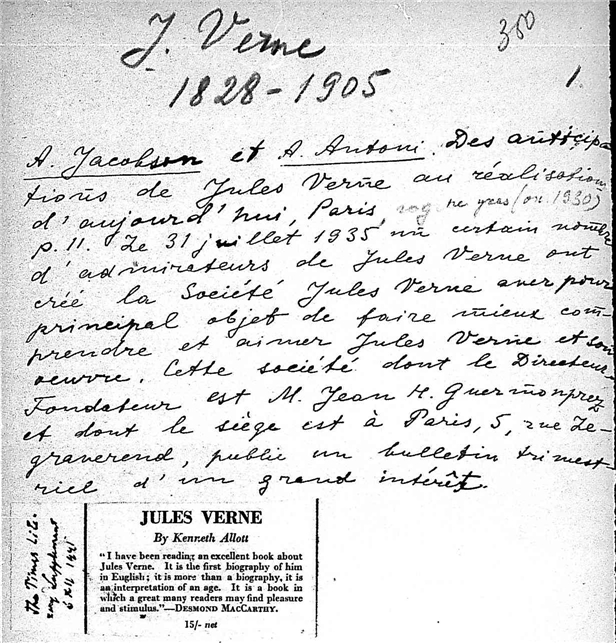 J. Verne
380
1828-1905
1.
A. Jacobson et A. Antoni. Des anticipa
tions de Jules Verne au réalisations
d'aujourd'hui, Paris, (ou 1930)
p. 11. Le 31 juillet 1935 un certain nombre
d'admirateurs de Jules Verne ont
créé la Société Jules Verne aver pour
principal objet de faire mieux com-
prendre et aimer Jules Verne et son
oeuvre. Cette société dont le Directeur-
Fondateur est M. Jean H. Guermonprez
et dont le siège est à Paris, 5, rue Le-
graverend, publie un bulletin trimest
riel d'un grand intérêt.
The Times Lite-
rary Supplement
JULES VERNE
By Kenneth Allott
"I have been reading an excellent book about
Jules Verne. It is the first biography of him
in English; it is more than a biography, it is
an interpretation of an age. It is a book in
which a great many readers may find pleasure
and stimulus."—DESMOND MACCARTHY.
15/- net